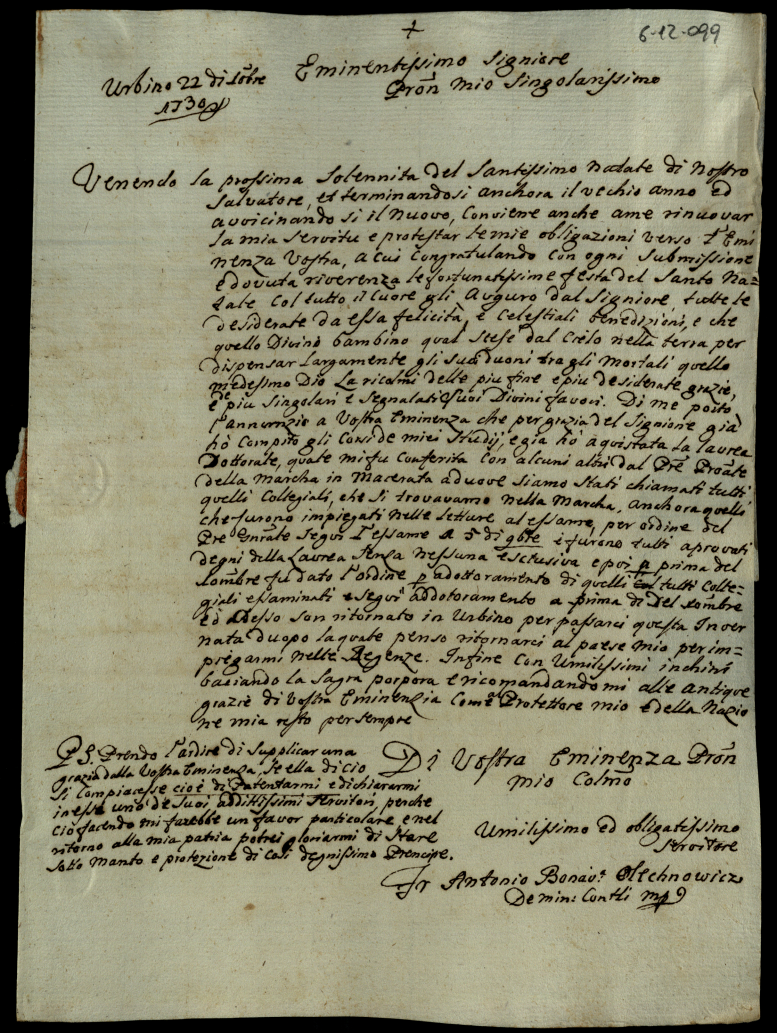 +
6-12-099
Eminentissimo Signiore
Urbino 22 di Xbre
Pron mio Singolarissimo
1730
Venendo la prossima Solennita del Santissimo Natale di Nostro
Salvatore, et terminandosi anchora il vechio anno ed
avvicinando si il Nuovo, Conviene anche ame rinuovar
la mia Servitu e protestar le mie obligazioni verso l'Emi
nenza Vostra, a cui Congratulando con ogni Submissione
e dovuta riverenza le fortunatissime festa del Santo Na=
tale Col tutto il Cuore gli Auguro dal Signiore tutte le
desiderate da essa felicità, e Celestiali benedizioni, e che
quello Divino bambino qual Stese dal Cielo nella terra per
dispensar largamente gli Suoi duoni tra gli Mortali quello
medessimo Dio La ricolmi delle piu fine e piu desiderate grazie,
e de piu Singolari e Segnalati Suoi Divini favori. Di me poito
l'annunzio a Vostra Eminenza che per grazia del Signiore già
hò Compito gli Corsi de miei Studij, e gia hò aquistata La laurea
Dottorale, quale mi fu Conferita Con alcuni altri dal Pre
della Marcha in Macerata aduove Siamo Stati chiamati tutti
quelli Collegiali, che Si trovavamo nella Marcha, anchora quelli
che furono impiegati nelle letture al essame, per ordine del
Pre Segui l'essame a 5 di 9bre e furono tutti aprovati
degni della Laurea Senza nessuna esclusiva e poi a prima del
Xombre fu dato l'ordine p adottoramento di quelli tutti Colle=
giali essaminati e Segui addotoramento a prima di del Xombre
ed adesso Son ritornato in Urbino per passarci questa Inver
nata duopo la quale penso ritornarci al paese mio per im=
piegarmi nelle Regenze. Infine Con Umilissimi inchini
baciando la Sagra porpora e ricomandando mi alle antique
grazie di Vostra Eminenzia Come Protettore mio e della Nazio
ne mia resto per sempre
PS. Prendo l'ardire di Supplicar una
grazia dalla Vostra Eminenza, Se ella di cio
Si Compiacesse cioè di Patentarmi e dichiararmi
in essa uno de Suoi, addittissimi Servitori, perche
Cio facendo mi farebbe un favor particolare e nel
ritorno alla mia patria potrei gloriarmi di Stare
Sotto Manto e protezione di Cosi degnissimo Prencipe.
Di Vostra Eminenza Pron
mio Colmo
Umilissimo ed obligatissimo
Servitore
Fr Antonio Bonav.a Olechnowicz
De min: Contli mp